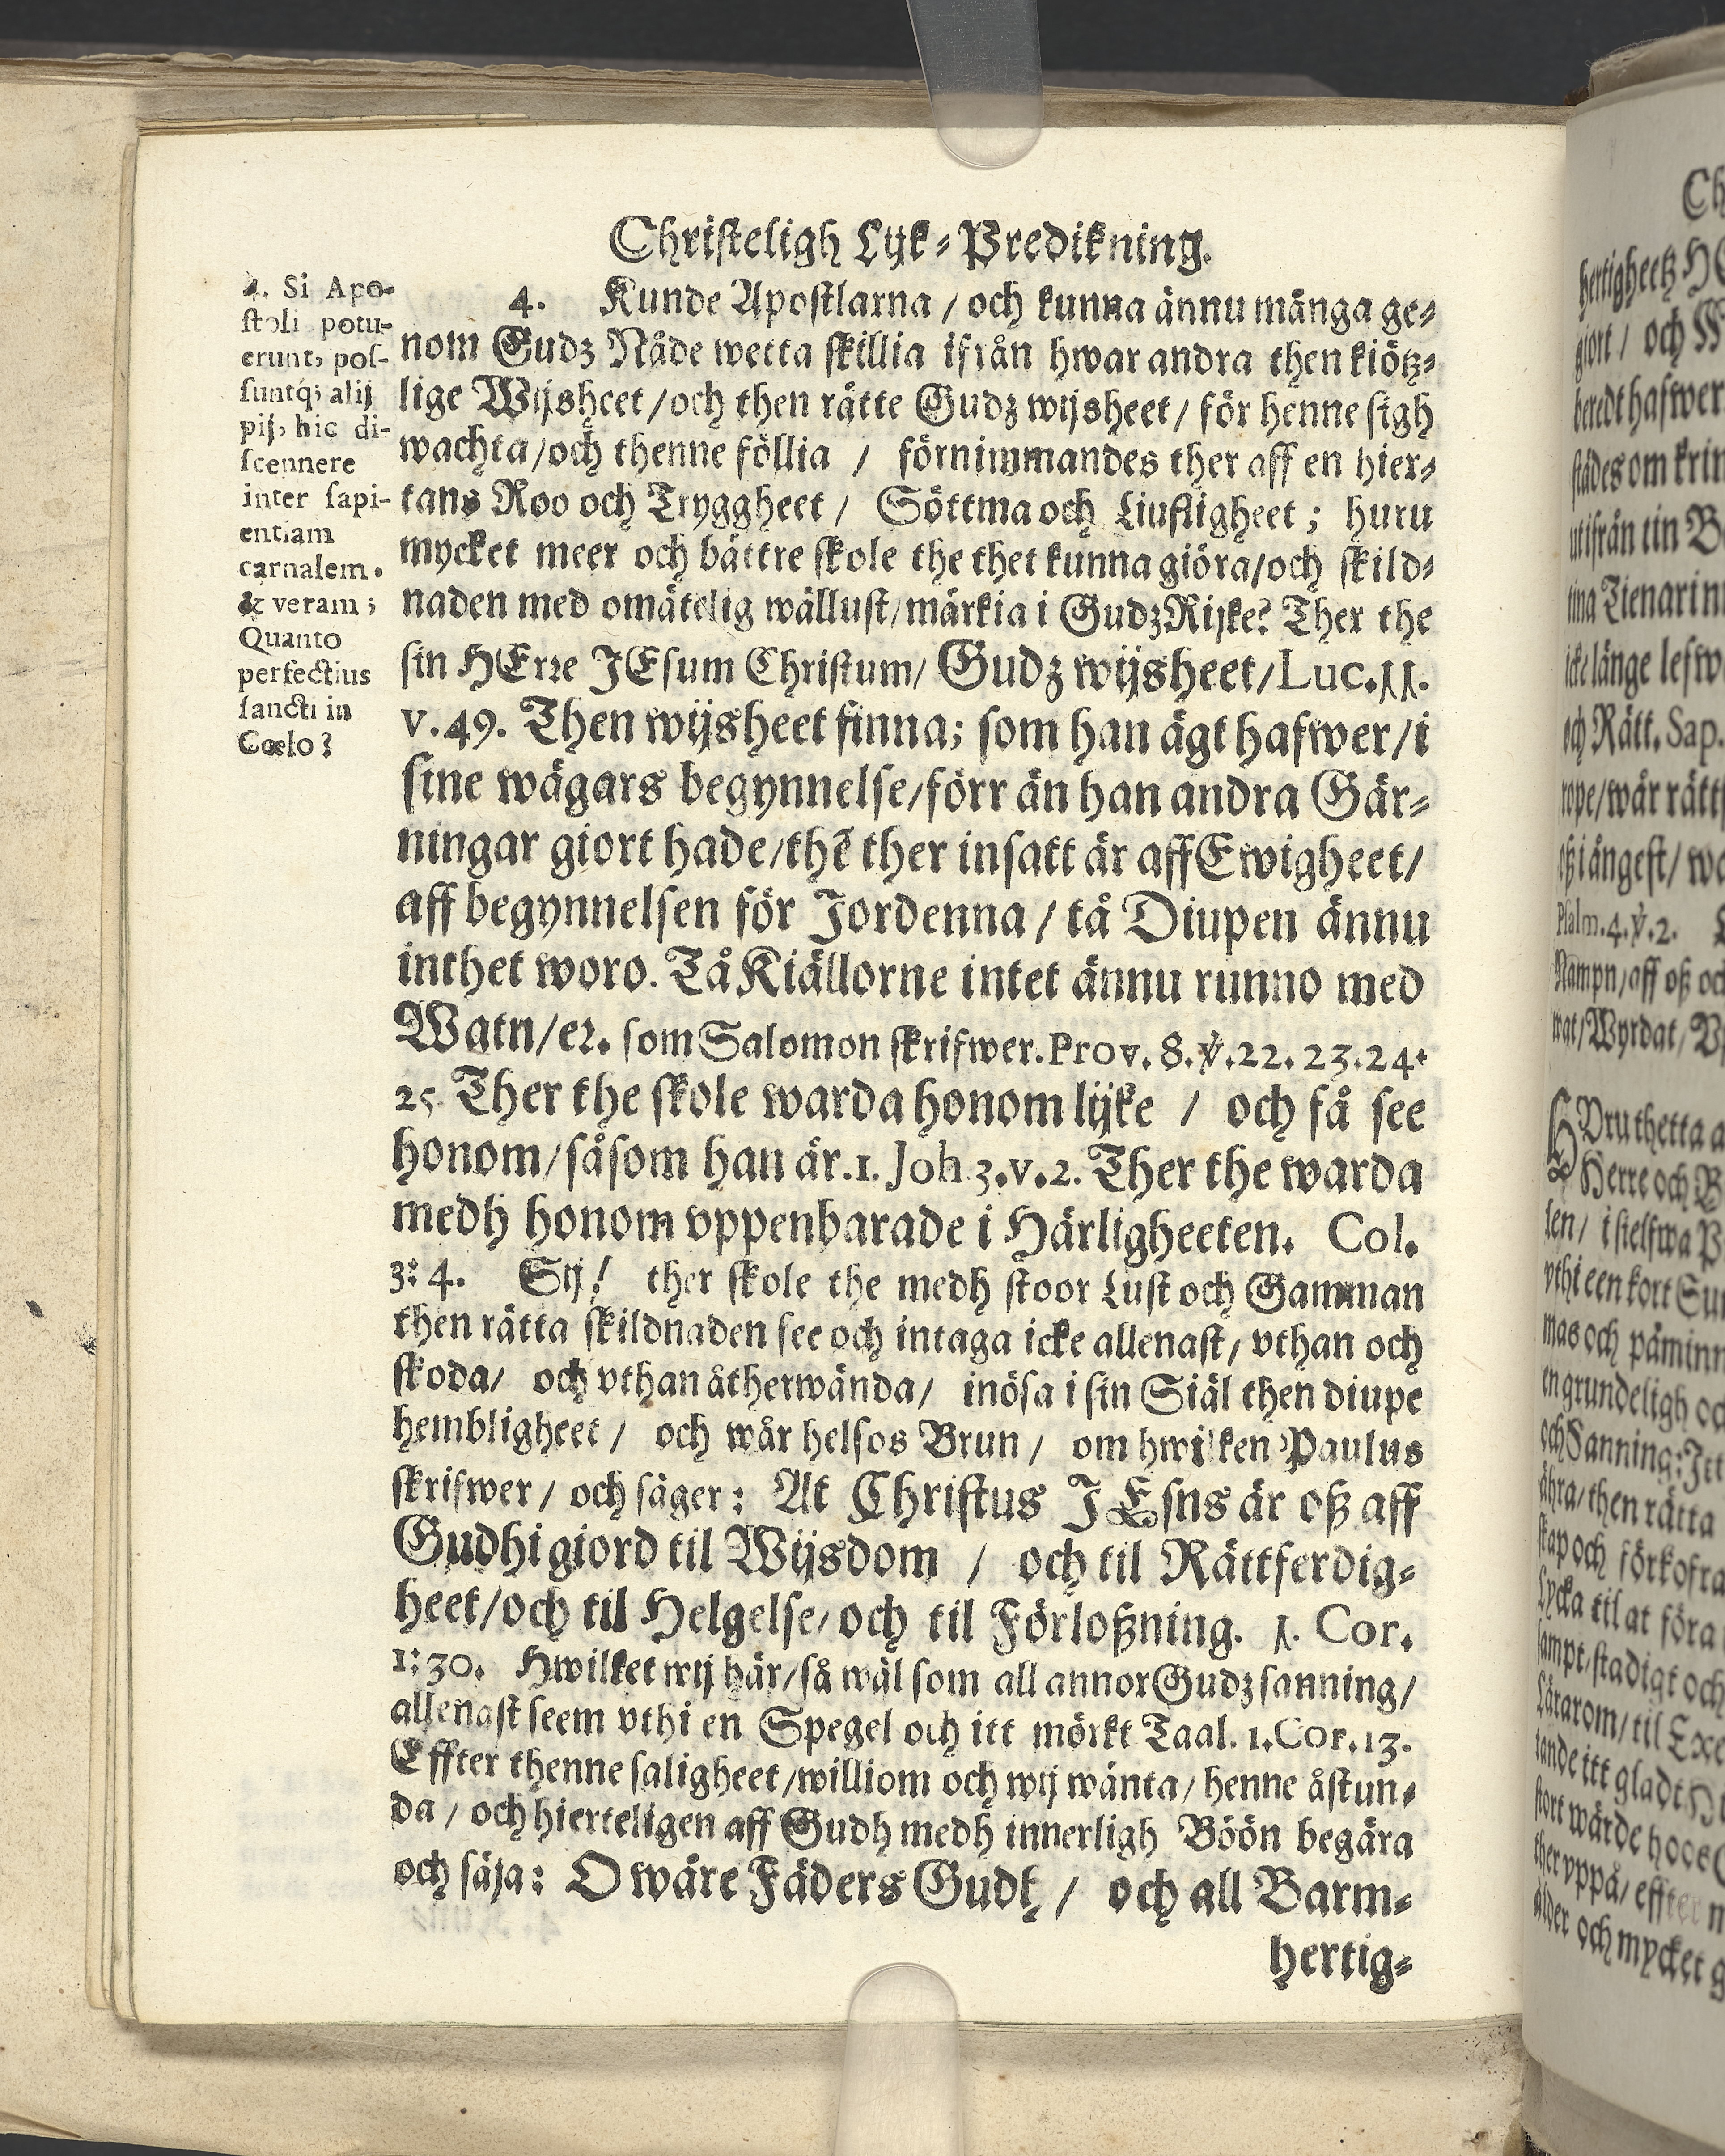 Christeligh Lijk-Predikning.
4. Si Apo-
stoli potu-
erunt, pos-
suntq; alij
pij, hic di-
scennere
inter sapi-
entiam
carnalem.
& veram;
Quanto
perfectius
sancti in
Cœlo?
4. Kunde Apostlarna / och kunna ännu många ge-
nom Gudz Nåde wetta skillia ifrån hwar andra then kiötz-
lige Wijsheet / och then rätte Gudz wijsheet / för henne sigh
wachta / och thenne föllia / förnimmandes ther aff en hier-
tans Roo och Tryggheet / Söttma och Liufligheet ; huru
mycket meer och bättre skole the thet kunna giöra / och skild-
naden med omätelig wällust / märkia i Gudz Rijke? Ther the
sin HErre JEsum Christum / Gudz wijsheet / Luc. 11.
v. 49. Then wijsheet finna; som han ägt hafwer / i
sine wägars begynnelse / förr än han andra Gär-
ningar giort hade / thē ther insatt är aff Ewigheet /
aff begynnelsen för Jordenna / tå Diupen ännu
inthet woro. Tå Kiällorne intet ännu runno med
Watn / ec. som Salomon skrifwer. Prov. 8. v. 22. 23. 24.
25. Ther the skole warda honom lijke / och få see
honom / såsom han är. 1. Joh. 3. v. 2. Ther the warda
medh honom vppenbarade i Härligheeten. Col.
3: 4. Sij! ther skole the medh stoor Lust och Gamman
then rätta skildnaden see och intaga icke allenast / vthan och
skoda / och vthan åtherwända / inösa i sin Siäl then diupe
hembligheet / och wår helsos Brun / om hwilken Paulus
skrifwer / och säger: At Christus JEsns är oß aff
Gudhi giord til Wijsdom / och til Rättferdig-
heet / och til Helgelse / och til Förloßning. 1. Cor.
1: 30. Hwilket wij här / så wäl som all annor Gudz sanning /
allenast seem vthi en Spegel och itt mörkt Taal. 1. Cor. 13.
Effter thenne saligheet / williom och wij wänta / henne åstun-
da / och hierteligen aff Gudh medh innerligh Böön begära
och säja: O wåre Fäders Gudh / och all Barm-
hertig-